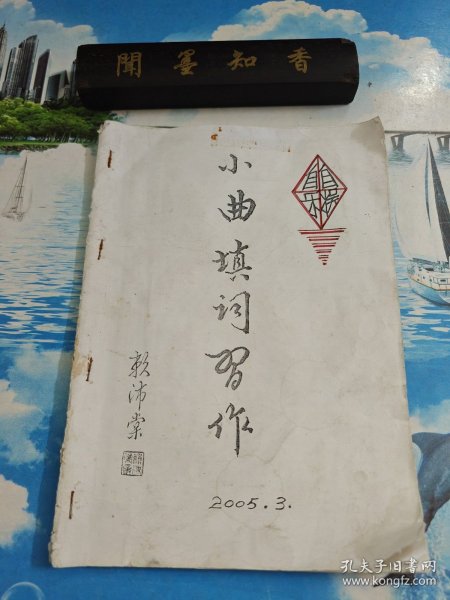 聞墨知香
小曲填词习作
赖沛棠
2005.3.
孔夫子旧书网
www.kongfz.com